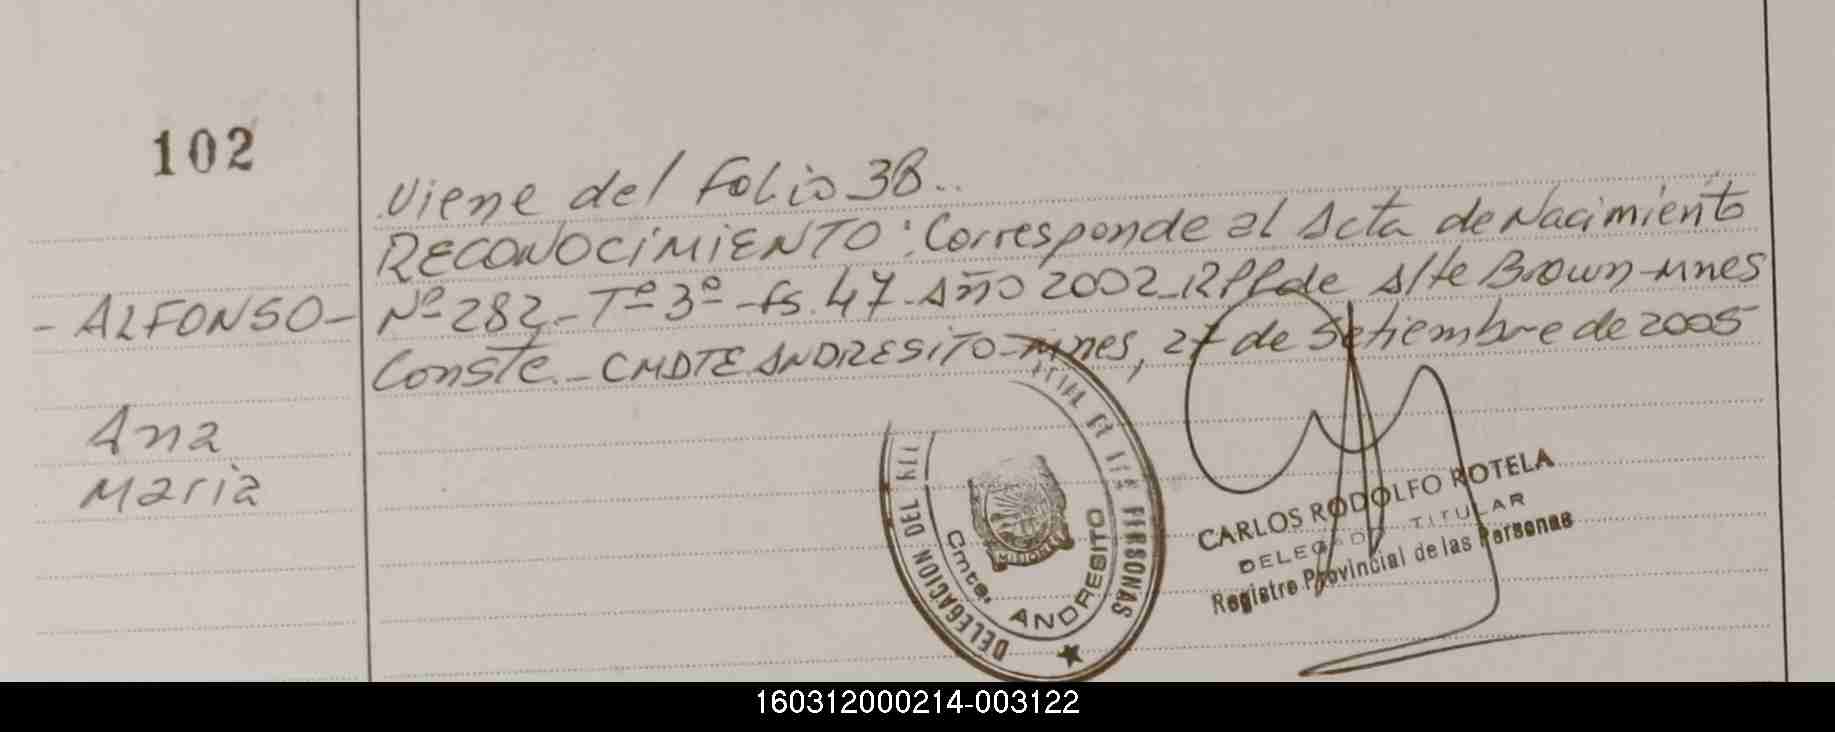 102
Viene del Folio 38..
RECONOCIMIENTO: Corresponde al Acta de Nacimiento
- ALFONSO - Nº 282 - Tº 3º - fs. 47 - Año 2002 - RPP de Alte Brown - Mnes
Conste. - CMDTE ANDRESITO - Mnes, 27 de Setiembre de 2005
Ana
Maria
DELEGACION DEL DE LAS PERSONAS
MISIONES
Cmte. ANDRESITO
CARLOS RODOLFO ROTELA
DELEGADO TITULAR
Registro Provincial de las Personas
160312000214-003122